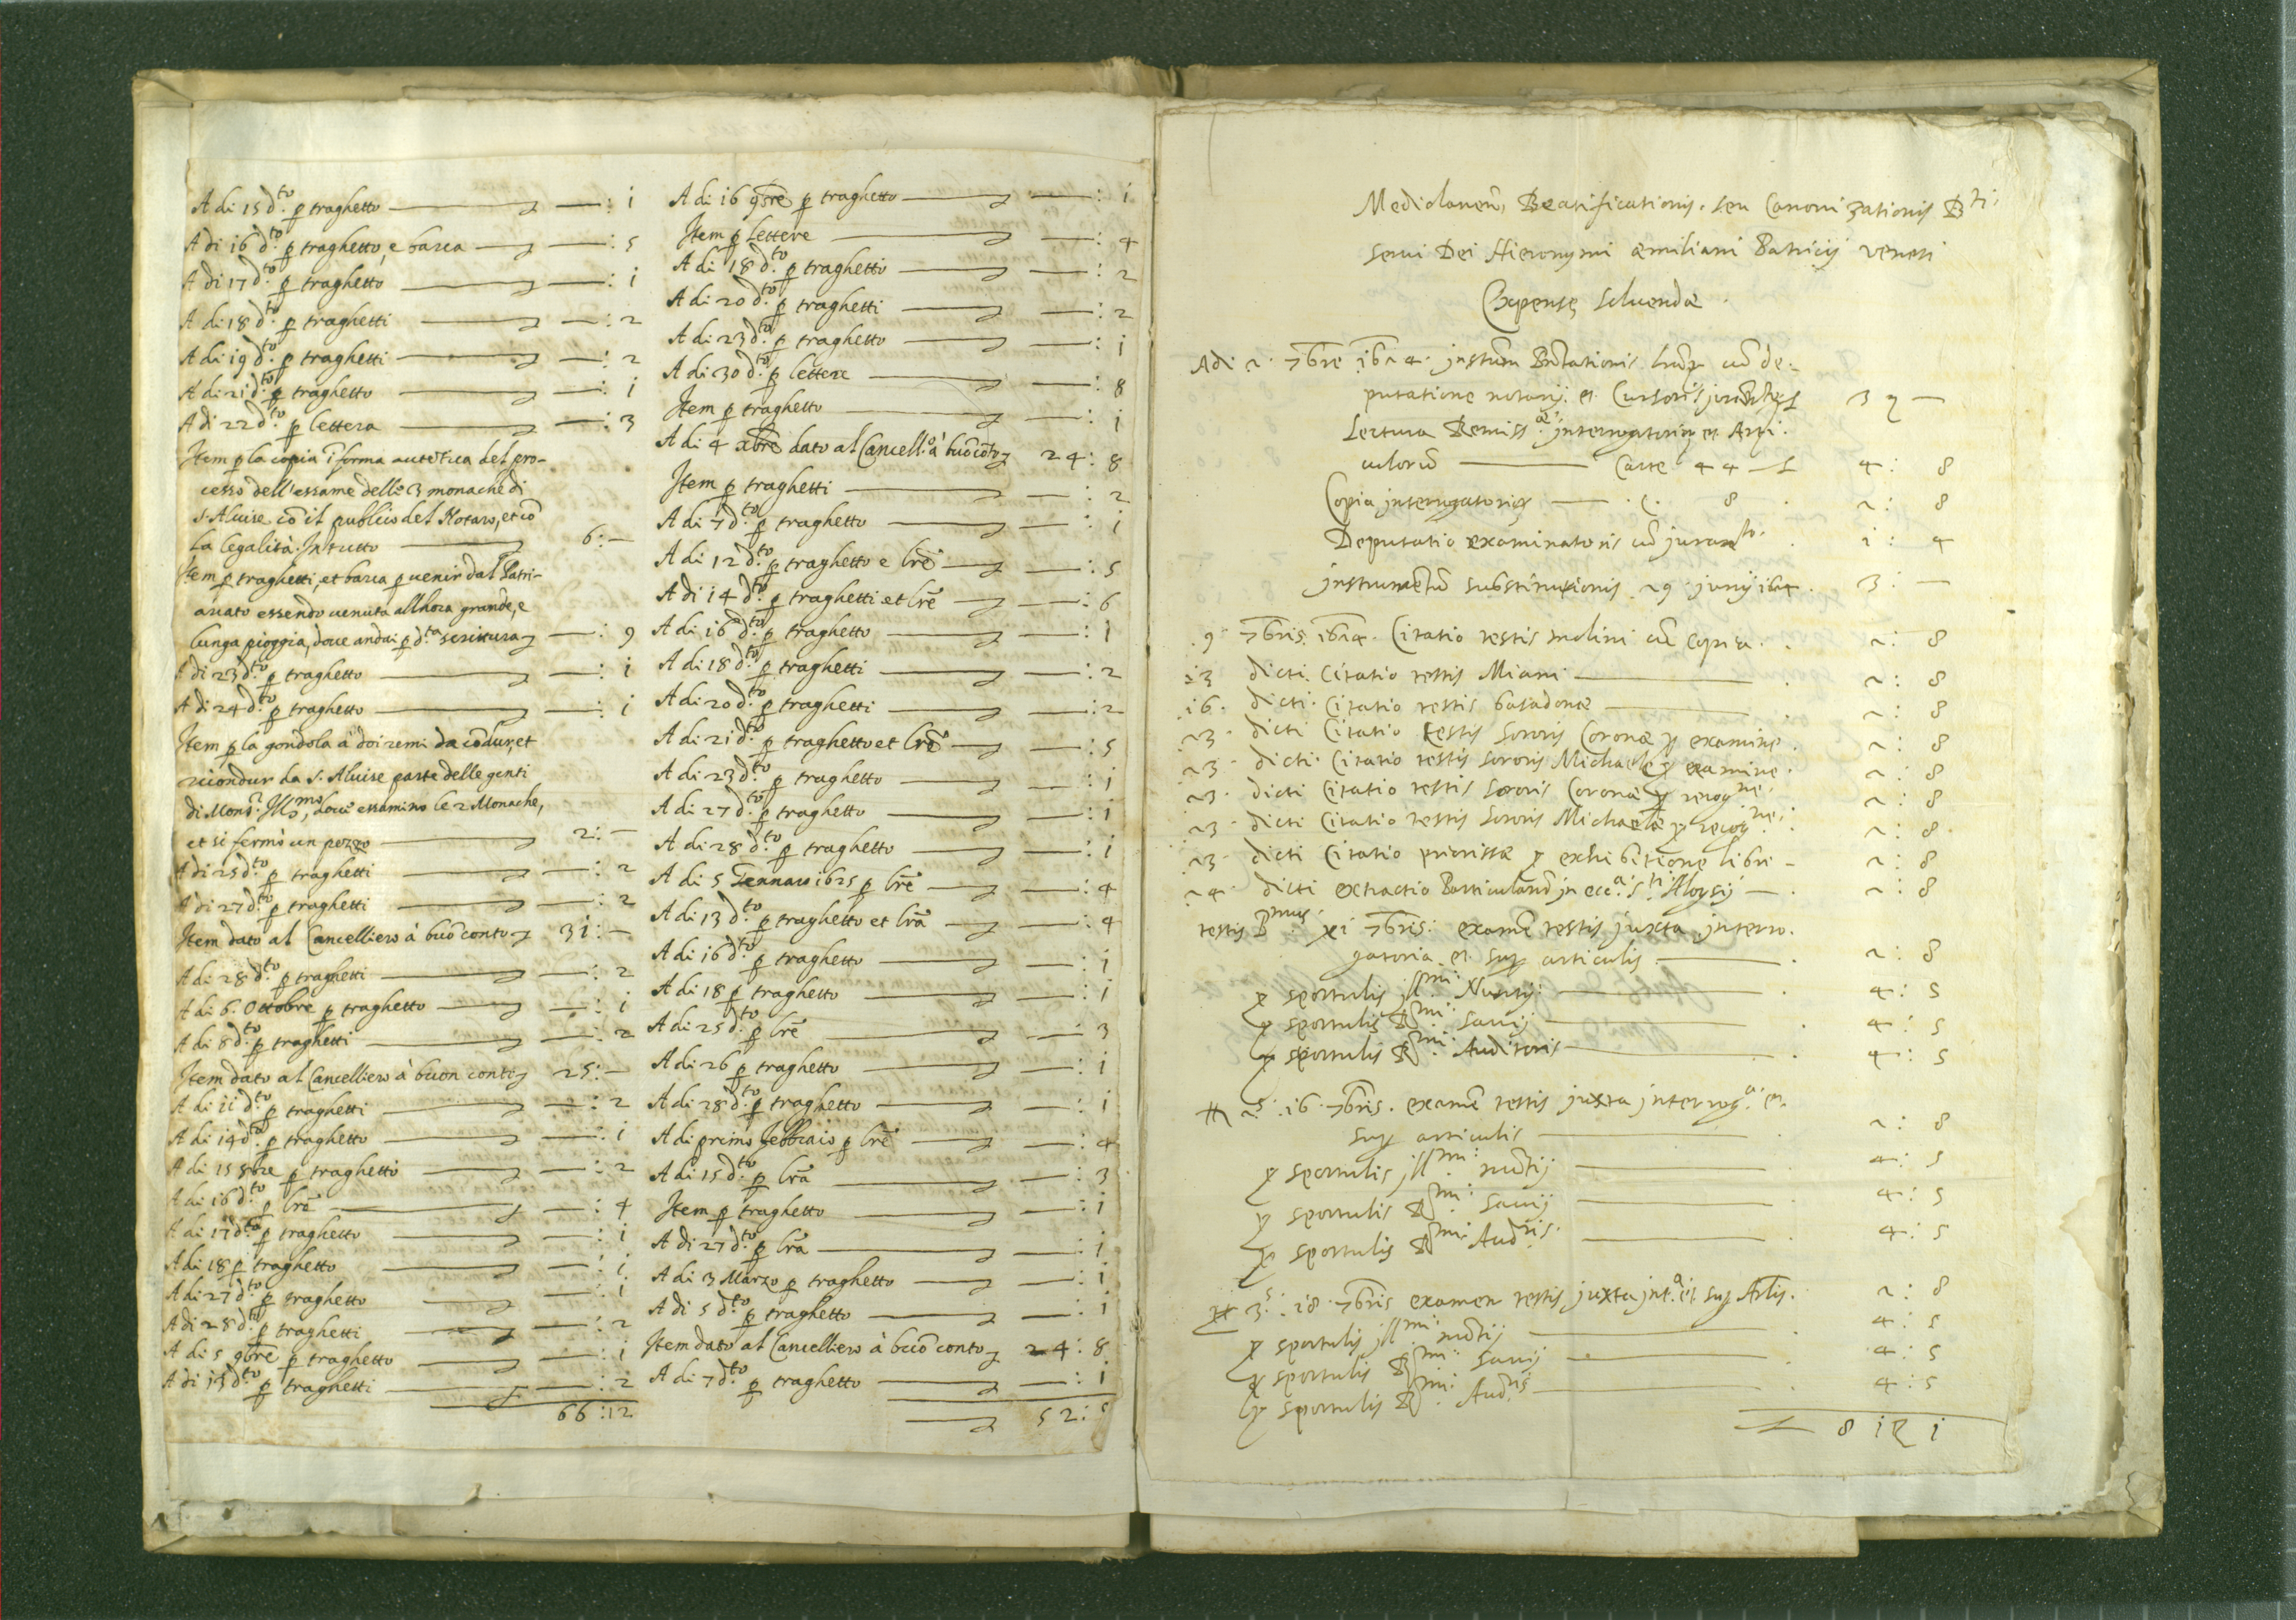 A di 15 d.to p traghetto — : i
A di 16 d.to p traghetto, e barca — : 5
A di 17 d.to p traghetto — : i
A di 18 d.to p traghetti — : 2
A di 19 d.to p traghetti — : 2
A di 21 d.to p traghetto — : i
A di 22 d.to p lettera — : 3
Item p la copia ĩ forma autẽtica del pro-
cesso dell'essame delle 3 monache di
S. Aluise cõ il publico del Notaro, et cõ
la legalità. In tutto — 6: —
Item p traghetti, et barca p venir dal Patri-
arcato essendo venuta all'hora grande, e
lunga pioggia, dove andai p d.ta scrittura — : 9
A di 23 d.to p traghetto — : i
A di 24 d.to p traghetto — : i
Item p la gondola à doi remi da cõdur, et
ricondur da S. Aluise parte delle genti
di Mons.r Ill.mo, dove essamino le 2 Monache,
et si fermò un pezzo — 2: —
A di 25 d.to p traghetti — : 2
A di 27 d.to p traghetti — : 2
Item dato al Cancelliero à buõ conto 31: —
A di 28 d.to p traghetti — : 2
A di 6. Ottobre p traghetto — : i
A di 8 d.to p traghetti — : 2
Item dato al Cancelliero à buon conto 25: —
A di 11 d.to p traghetti — : 2
A di 14 d.to p traghetto — : i
A di 15 8bre p traghetti — : 2
A di 16 d.to p lr̃e — : 4
A di 17 d.to p traghetto — : i
A di 18 p traghetto — : i
A di 27 d.to p traghetto — : i
A di 28 d.to p traghetti — : 2
A di 5 9bre p traghetto — : i
A di 15 d.to p traghetti — : 2
66:12
A di 16 9bre p traghetto — : i
Item p lettere — : 4
A di 18 d.to p traghetti — : 2
A di 20 d.to p traghetti — : 2
A di 23 d.to p traghetto — : i
A di 30 d.to p lettere — : 8
Item p traghetto — : i
A di 4 xbre dato al Cancell.o à buõ cõto 24: 8
Item p traghetti — : 2
A di 7 d.to p traghetto — : i
A di 12 d.to p traghetto e lr̃e — : 5
A di 14 d.to p traghetti et lr̃e — : 6
A di 16 d.to p traghetto — : 1
A di 18 d.to p traghetti — : 2
A di 20 d.to p traghetti — : 2
A di 21 d.to p traghetto et lr̃e — : 5
A di 23 d.to p traghetto — : i
A di 27 d.to p traghetto — : 1
A di 28 d.to p traghetto — : i
A di 5 Gennaro 1625 p lr̃e — : 4
A di 13 d.to p traghetto et lr̃a — : 4
A di 16 d.to p traghetto — : i
A di 18 p traghetto — : i
A di 25 d.to p lr̃e — : 3
A di 26 p traghetto — : i
A di 28 d.to p traghetto — : i
A di primo Febbraio p lr̃e — : 4
A di 15 d.to p lr̃a — : 3
Item p traghetto — : i
A di 27 d.to p lr̃a — : i
A di 3 Marzo p traghetto — : i
A di 5 d.to p traghetto — : i
Item dato al Cancelliero à buõ conto 24: 8
A di 7 d.to p traghetto — : i
52: 5
Mediolanen, Beatificationis. seu Canonizationis
servi Dei Hieronymi Æmiliani Patricij Veneti
Expensę solvendæ.
Adi 2. 7bre 1624.
putatione notarij. et Cursoris
Lectura Remiss. interrogatoriorum et Arti-
culorũ — Carte 44 — 4: 8
Copia interrogatoriorum — C. 8. 2: 8
Deputatio examinatoris cũ juram.to. i: 4
jnstrumentũ substitutionis 29 junij 1624. 3: —
9 7bris 1624. Citatio testis Molini cũ copia. 2: 8
13 dicti. Citatio testis Miani — 2: 8
16. dicti. Citatio testis badadonæ — 2: 8
23. dicti Citatio testis Sororis Coronæ p examine. 2: 8
23. dicti. Citatio testis Sororis Michaelę p examine. 2: 8
23. dicti Citatio testis Sororis Coronæ p recog.ne. 2: 8
23. dicti Citatio testis Sororis Michaelæ p recog.ne. 2: 8
23. dicti Citatio priorissæ p exhibitione libri — 2: 8
24. dicti extractio Particularũ jn ecc.a S.ti Aloysij — 2: 8
testis P.mus. xi 7bris: examẽ testis juxta jnterro-
gatoria. et sup articulis — 2: 8
p sportulis jll.mi Nuntij — 4: 5
p sportulis R.mi Savij — 4: 5
p sportulis R.mi Auditoris — 4: 5
2.s 16. 7bris. examẽ testis juxta jnterrog.a et.
sup articulis — 2: 8
p sportulis jll.mi nũtij — 4: 5
p sportulis R.mi Savij — 4: 5
p sportulis R.mi Aud.ris. — 4: 5
3.s. 18. 7bris examen testis juxta jnt.a et sup Artis. 2: 8
p sportulis jll.mi nũtij — 4: 5
p sportulis R.mi Savij — 4: 5
p sportulis R.mi Aud.ris — 4: 5